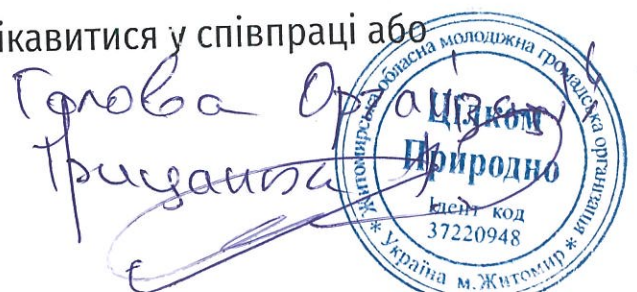 ікавитися у співпраці або
Голова Організації
Житомирська обласна молодіжна громадська організація
Цілком
Природно
Ідент код
37220948
* Україна м. Житомир *